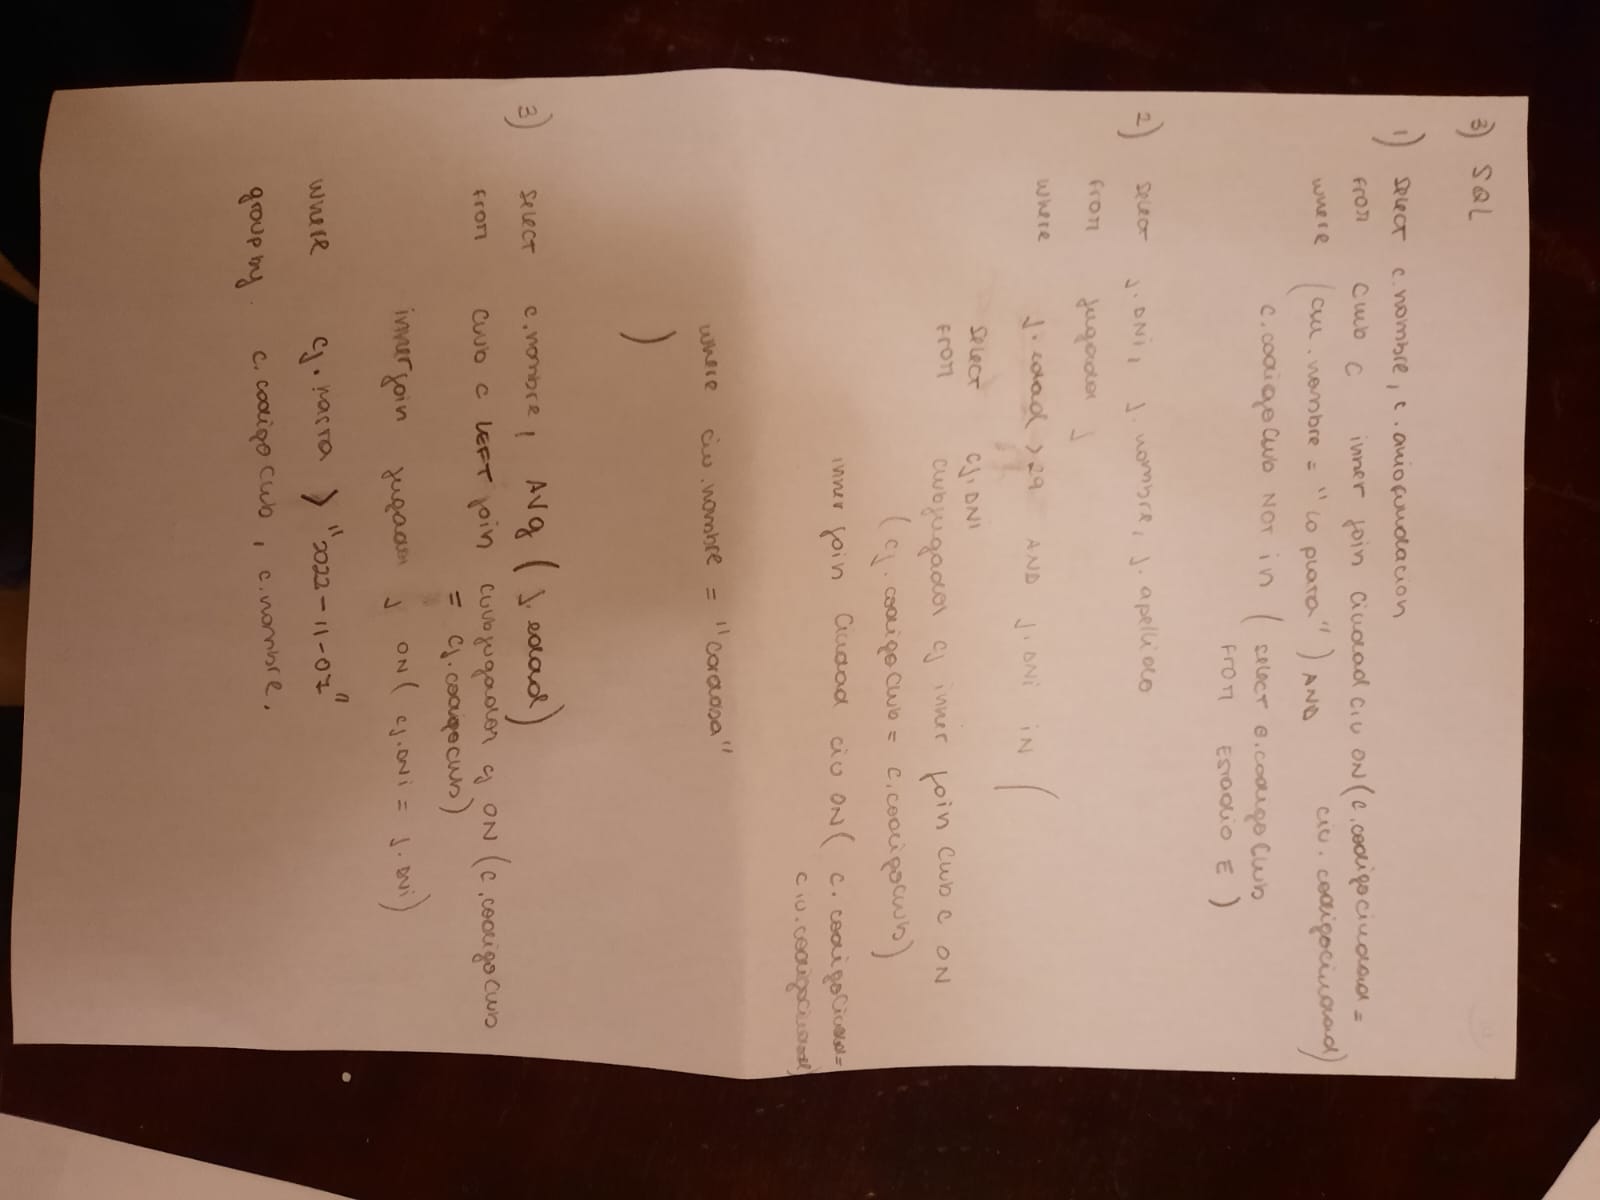 3) SQL
1) select c.nombre, c.aniofundacion
From club c inner join ciudad ciu ON (c.codigociudad =
ciu.codigociudad)
where (ciu.nombre = "La plata") AND
c.codigoclub NOT in ( select e.codigoclub
From Estadio E )
2) select J.DNi, J.nombre, J.apellido
From jugador J
where J.edad > 29 AND J.DNi iN (
select cj.DNi
From clubjugador cj inner join club c ON
(cj.codigoclub = c.codigoclub)
inner join ciudad ciu ON ( c.codigociudad =
ciu.codigociudad)
where ciu.nombre = "cordoba"
)
3) select c.nombre, AVg ( J.edad)
From club c LEFT join clubjugador cj ON (c.codigoclub
= cj.codigoclub)
innerjoin jugador J ON ( cj.DNi = J.DNi)
where cj.hasta > "2022-11-07"
group by c.codigoclub, c.nombre.